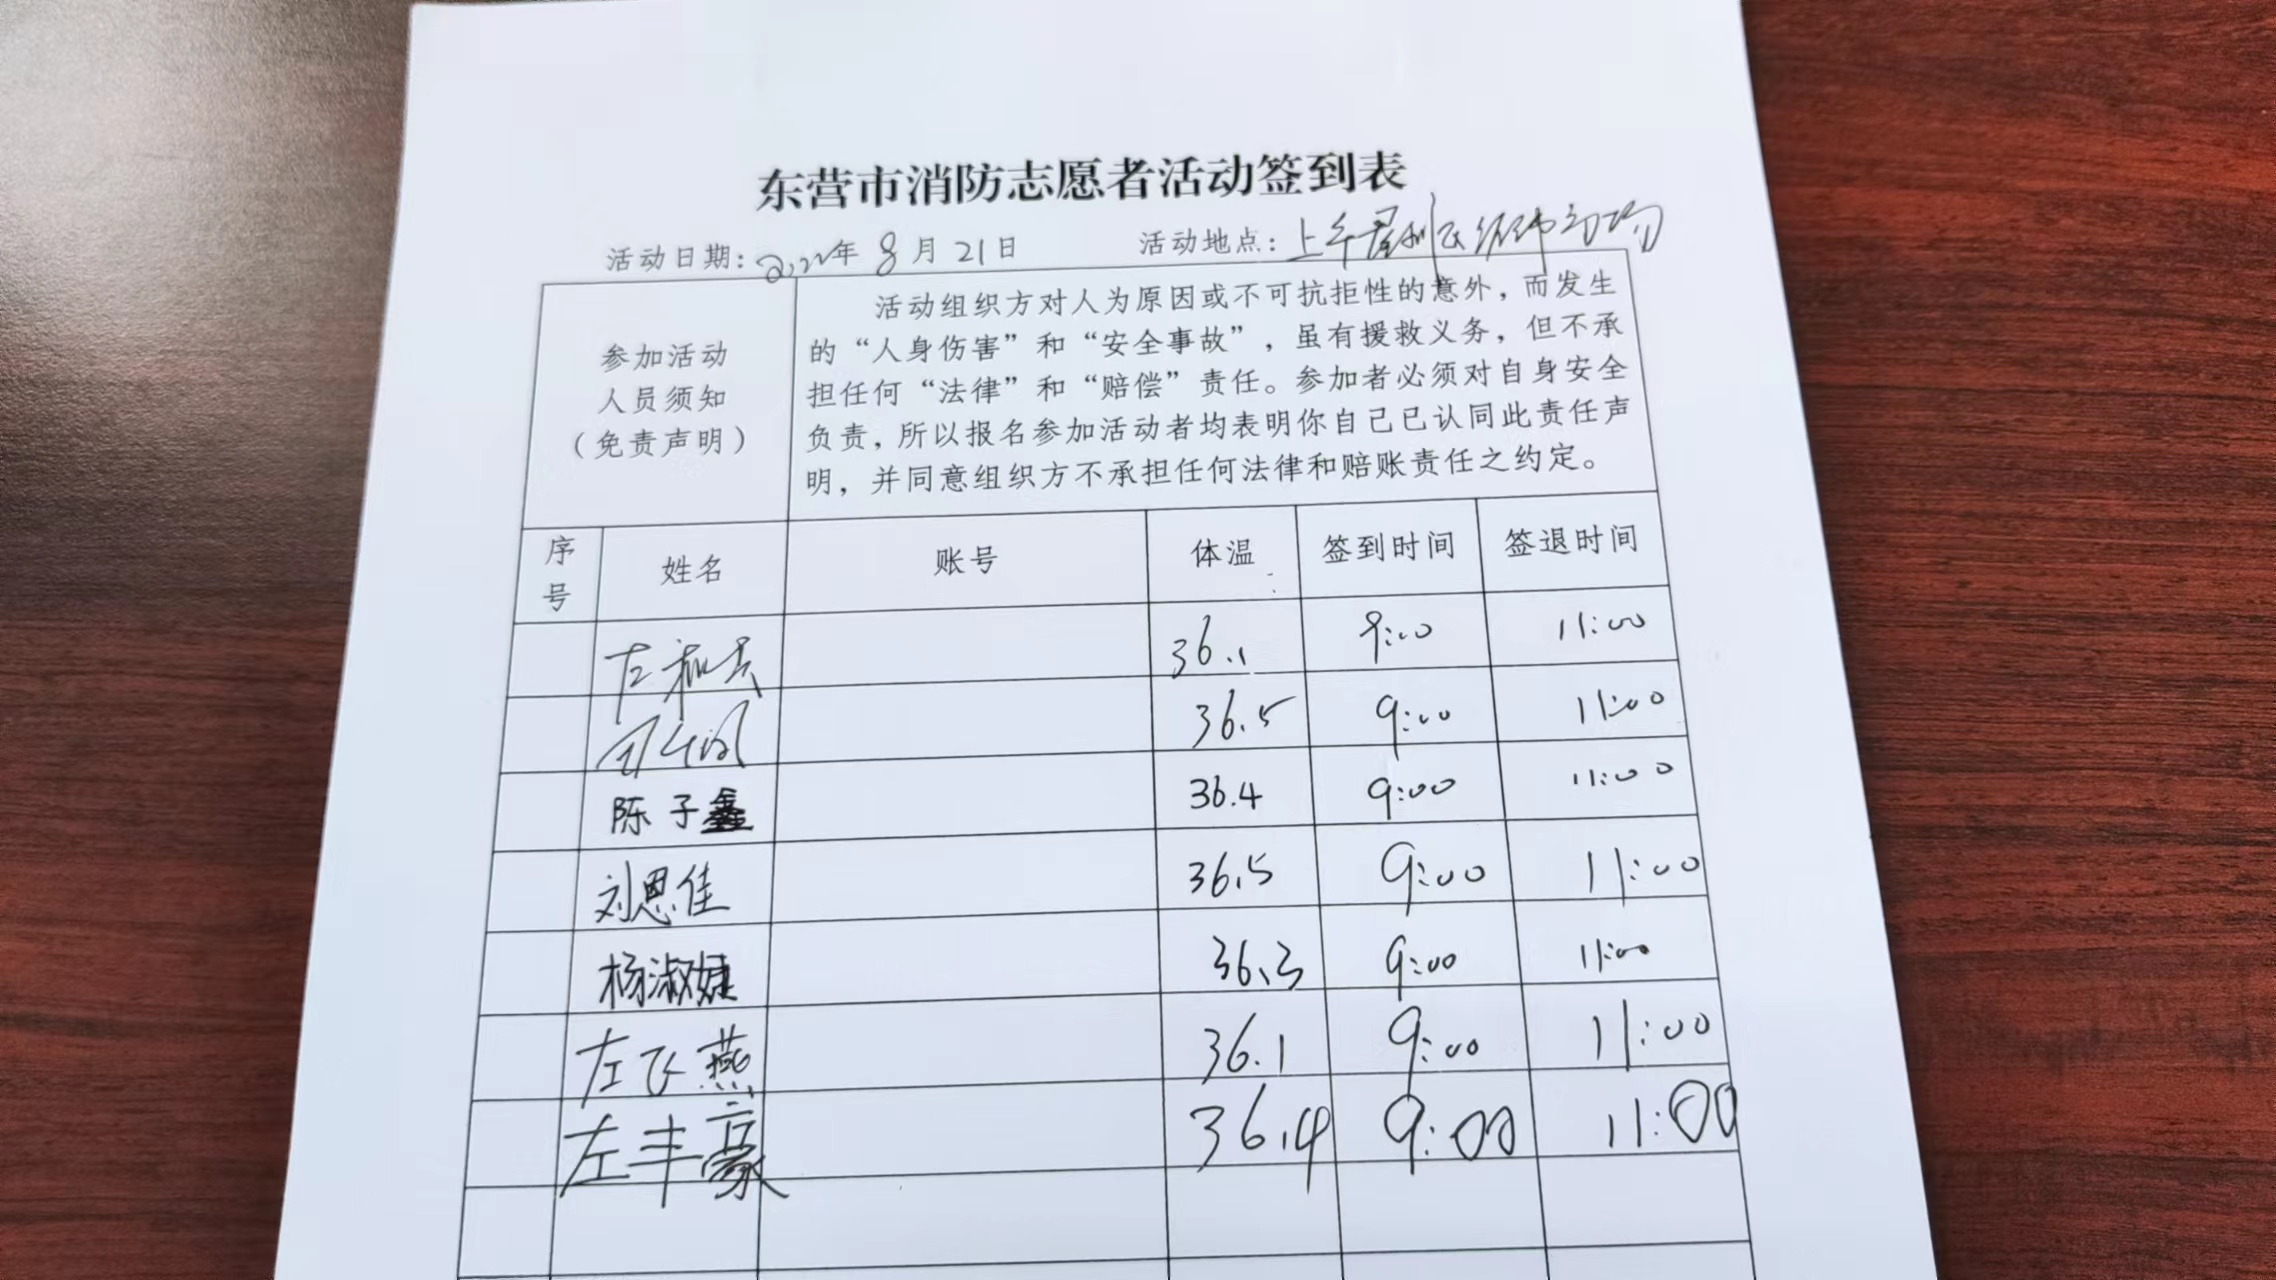 东营市消防志愿者活动签到表
活动日期：2022年 8月 21日 活动地点：上午垦利区
参加活动
人员须知
（免责声明）
活动组织方对人为原因或不可抗拒性的意外，而发生
的“人身伤害”和“安全事故”，虽有援救义务，但不承
担任何“法律”和“赔偿”责任。参加者必须对自身安全
负责，所以报名参加活动者均表明你自己已认同此责任声
明，并同意组织方不承担任何法律和赔账责任之约定。
序号 姓名 账号 体温 签到时间 签退时间
左 36.1 9:00 11:00
36.5 9:00 11:00
陈子鑫 36.4 9:00 11:00
刘恩佳 36.5 9:00 11:00
杨淑婕 36.3 9:00 11:00
左飞燕 36.1 9:00 11:00
左丰豪 36.4 9:00 11:00